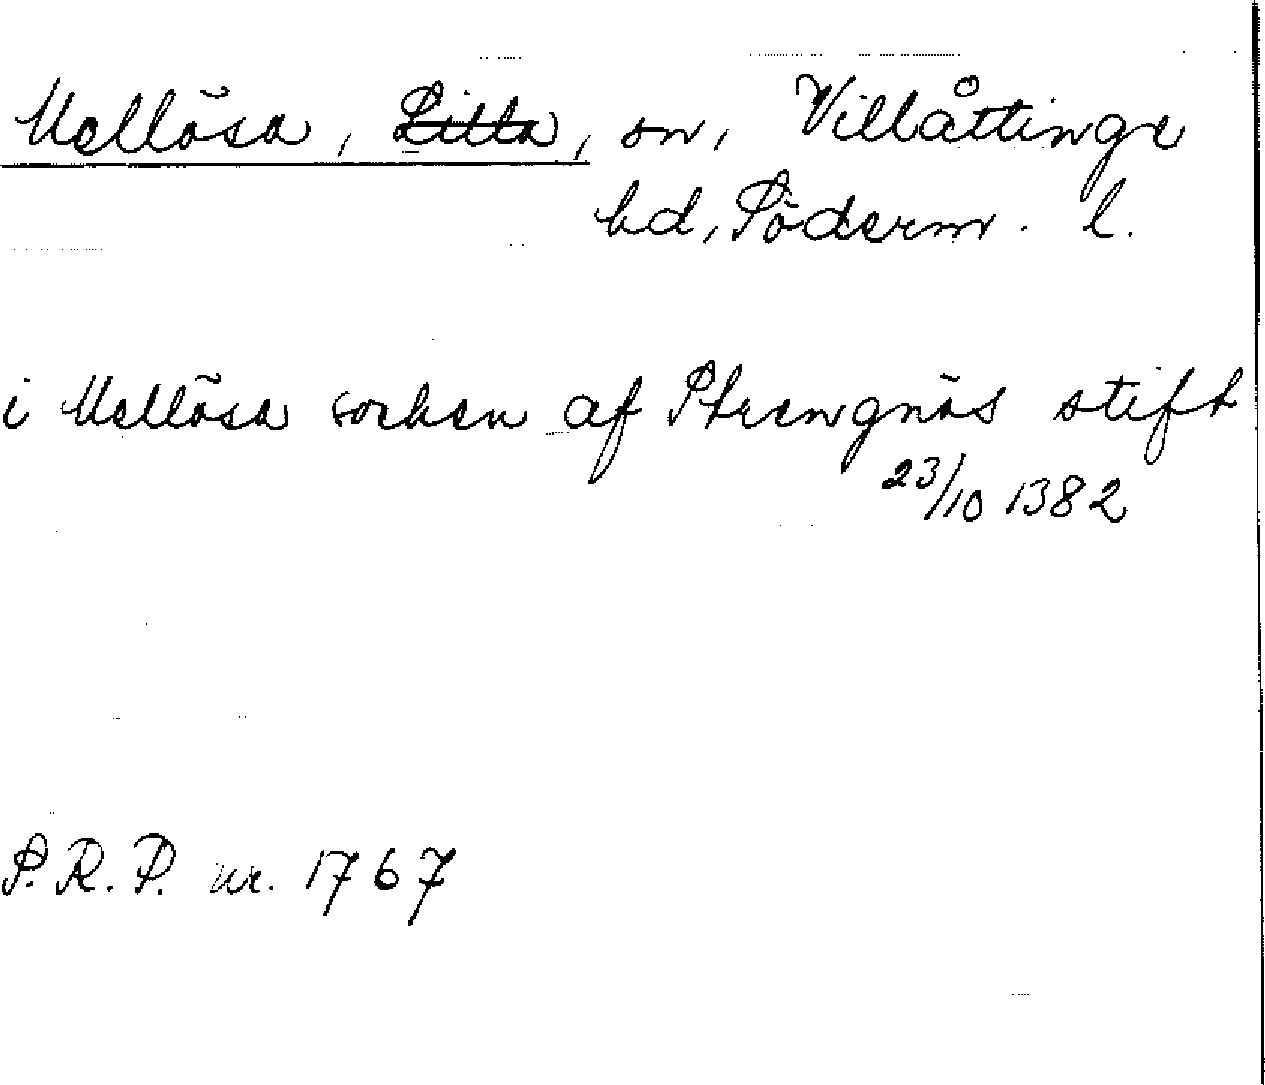 Mellösa, Lilla, sn, Villåttinge
hd, Söderm. l.
i Mellösa socken af Strengnäs stift
23/10 1382
S.R.P. nr. 1767